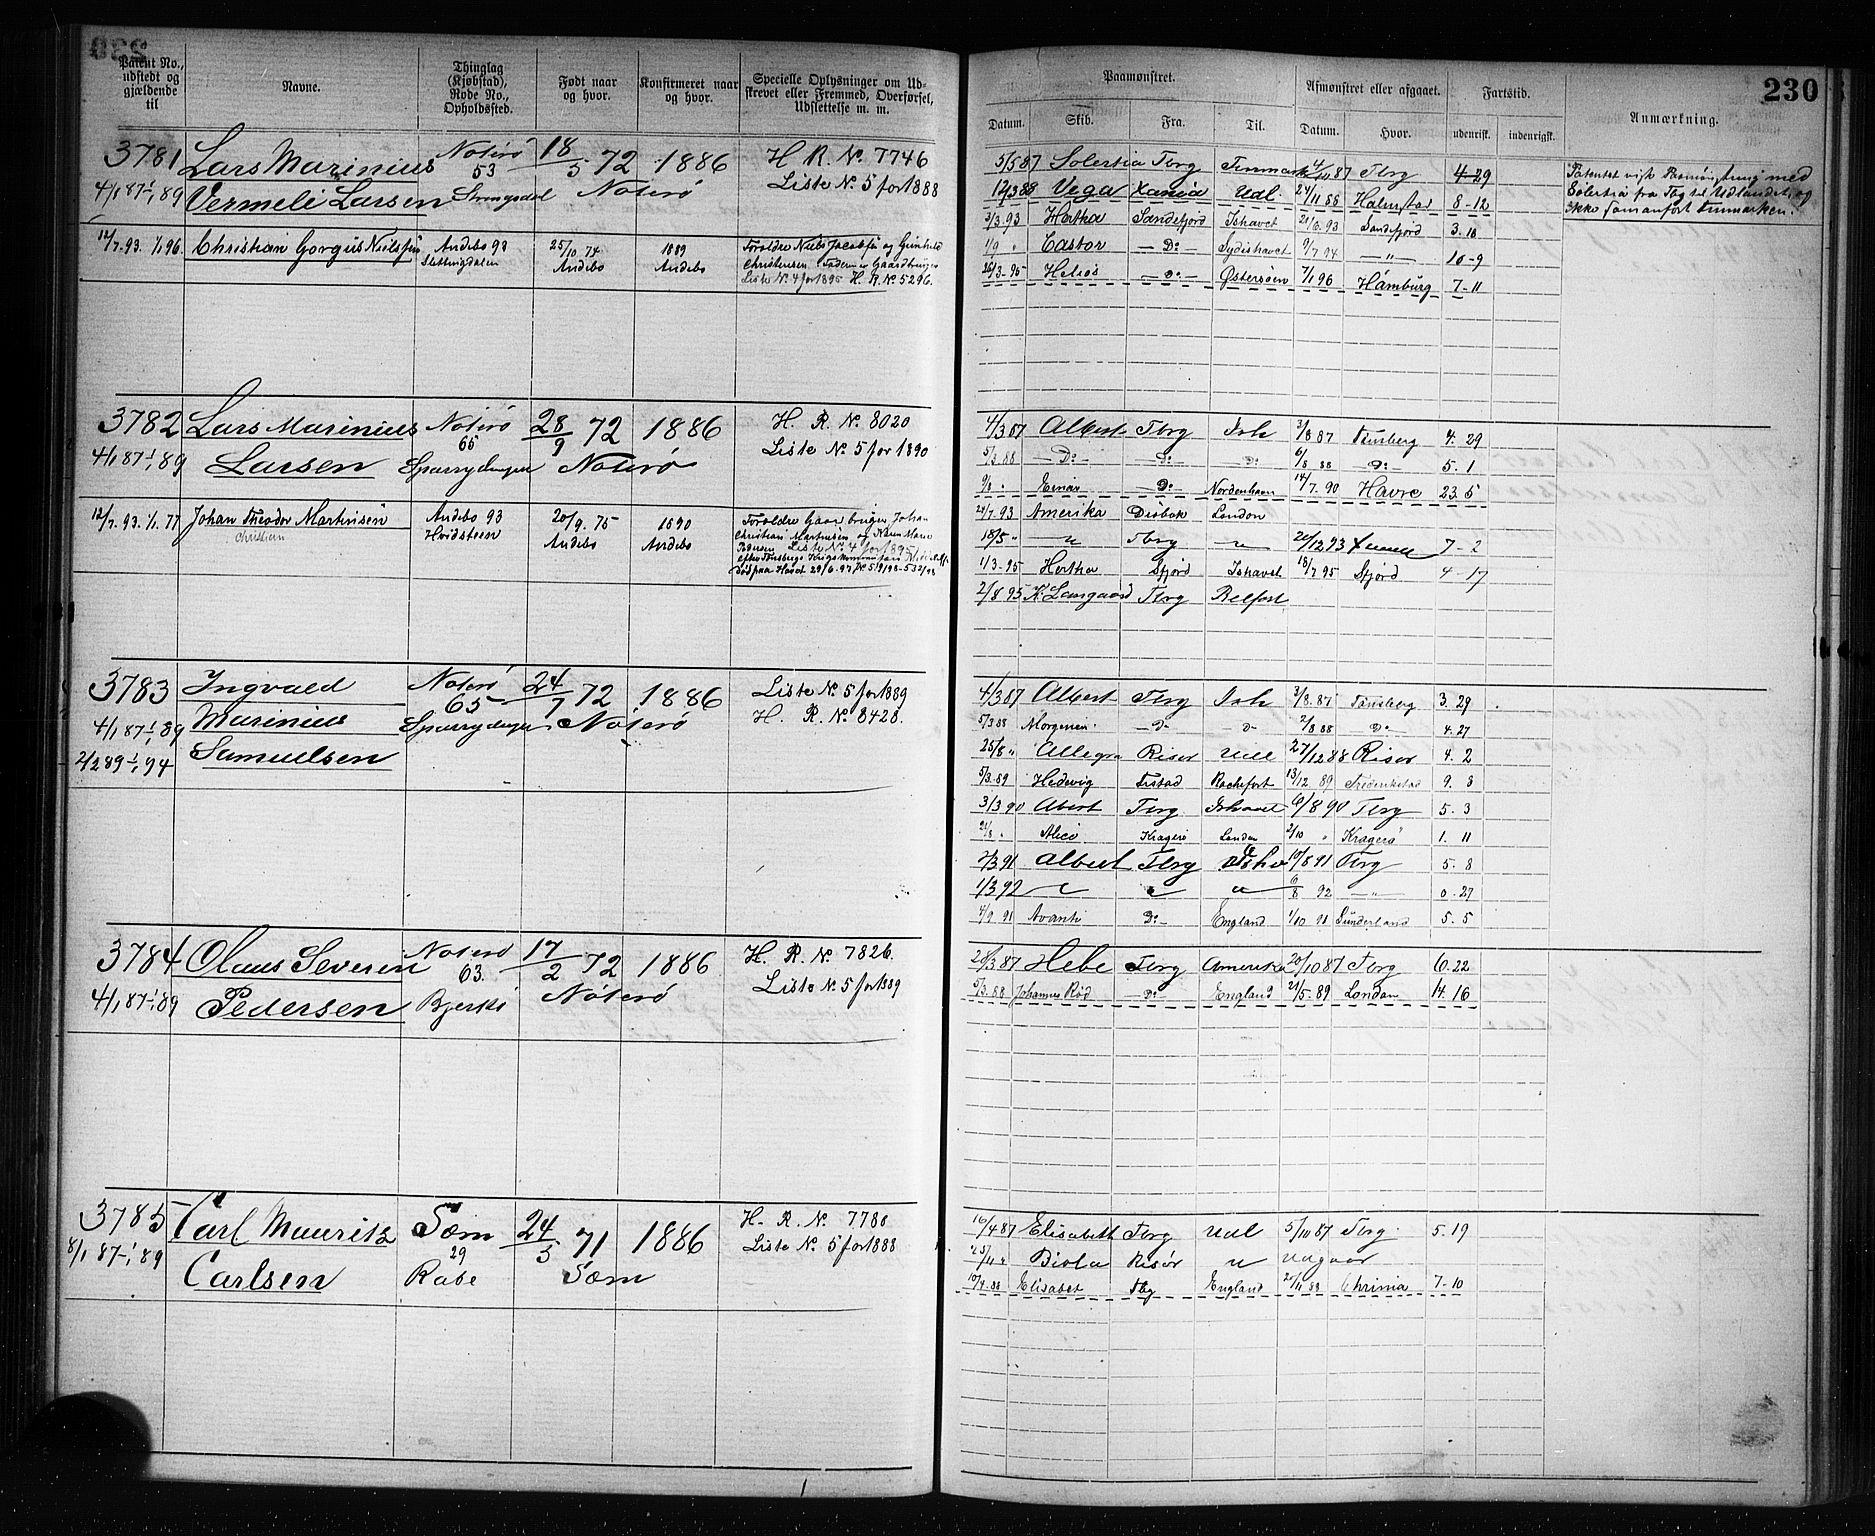 230
Patent No., udstedt og gjældende til
Navne.
Thinglag (Kjøbstad), Rode No., Opholdssted.
Født naar og hvor.
Konfirmeret naar og hvor.
Specielle Oplysninger om Udskrevet eller Fremmed, Overførsel, Udslettelse m. m.
Paamønstret.
Afmønstret eller afgaaet.
Fartstid.
Anmærkning.
Datum. Skib. Fra. Til. Datum. Hvor. udenrigsk. indenrigsk.
3781 Lars Marinius Noterö 18/5 72 1886 H. R. No. 7746
4/1 87-1/1 89 Vermeli Larsen 53 Noterö Liste No. 5 for 1888
12/7.93. 1/1.96. Christian Gorgus Nielsen Andebo 93 25/10.74 1889 Forældre Niels Jacobsen og Gunhild
Slettingdalen Andebo Andebo Christensen
Liste No. 4 for 1895 H. R. No. 5296.
5/5 87 Solertia Tbrg Finmarken Tbrg 4-29
12/3 88 Vega Xania Udl 24/11 88 Halmstad 8-12
3/3.93 Hertha Sandefjord Ishavet 93 Sandefjord 3.18
1/9 " Castor - Do - Sydishavet 9/7 94 - " - 10-9
26/3-95 Helios - Do - Østersøen 7/1 96 Hamburg 7-11
Patentet vist Paamønstring med
Solertia fra Tbg til Udlandet, og
ikke Finmarken.
3782 Lars Marinius Noterö 28/9 72 1886 H. R. No. 8020
4/1 87-1/1 89 Larsen 65 Noterö Liste No. 5 for 1890
12/7.93. 1/1.97 Johan Theodor Martinsen Andebo 93 20/9.75 1890 Forældre Gaarbruger Johan
Christian Hvidsteen Andebo Andebo Christian Martinsen og Karen Marie
Pedersen Liste No. 4 for 1895
død paa Havet 29/6.97
4/3 87 Albert Tbrg Ish 3/8 87 Tünsberg 4.29
5/3.88 - Do - - Do - Do 6/8 88 - Do - 5.1
9/8 " Einar - Do - Nordenhavn 14/7.90 Havre 23.5
24/7.93 Amerika Drøbak London
18/5 " - " - Tbrg - " - 20/12 93 7-2
1/3-95 Hertha Sfjord Ishavet 18/7 95 Sfjord 4-17
2/8 95 K. Langaard Tbrg Belfast
3783 Ingvald Noterö 24/7 72 1886 Liste No. 5 for 1889
4/1 87-1/1 89 Marinius 65 Noterö H. R. No. 8428.
2/2 89-1/1 94 Samuelsen
4/3 87 Albert Tbrg Ish 3/8.87 Tünsberg 3.29
5/3 88 Morgenen - Do - - Do - 2/8 88 Do - 4.27
25/8 " Allegro Risør Udl 27/12 88 Risør 4.2
5/3.89 Hedevig Fristad Rochefort 13/12 89 Frederikstad 9.8
3/3 90 Abert Tbrg Ishavet 6/8 90 Tbrg 5.3
21/8 " Alice Kragerö London 2/10 " Kragerö 1.11
2/3 91 Albert Tbrg Ishv 10/8 91 Tbrg 5.8
1/3 92 - " - " - " - 6/8 92 - " - 0.27
4/9 91 Avanti Do - England 1/10 91 Sünderland 5.5
3784 Olaus Severin Noterö 17/2 72 1886 H. R. No. 7826.
4/1 87-1/1 89 Pedersen 63. Bjerkö Nöterö Liste No. 5 for 1889
28/3 87 Hebe Tbrg Amerika 20/10 87 Tbrg 6.22
5/3.88 Johannes Rød - Do - England 21/5.89 London 14.16
3785 Carl Mauritz Sœm 24/5 71 1886 H. R. No. 7780
8/1 87-1/1 89 Carlsen 29 Rabe Sœm Liste No. 5 for 1888
16/4 87 Elisabeth Tbrg Udl 5/10 87 Tbrg 5.19
25/11 " Risør " Udgaar
10/4.88 Elisabet Tbg England 88 Chrinia 7-10